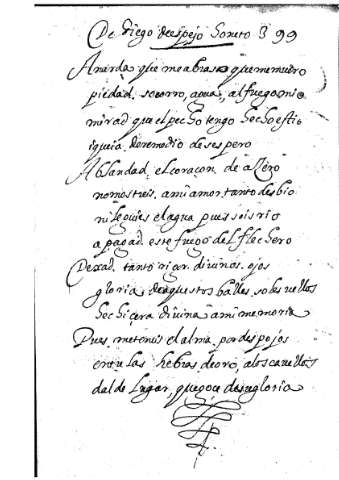 De Diego despejo Soneto 399
Anarda que me abraso que me muero
piedad. socorro, agua, al fuego mio
mirad que el pecho tengo hecho estio
i que ia de remedio desespero
Ablandad el coraçon de azero
no mostreis a mi amor tanto desbio
el agua pues sois rio
apagad este fuego del flechero
Dexad tanto rigor divinos ojos
gloria de aquestos balles soles bellos
hechiçera divina a mi memoria
Pues meteis el alma por despojos
entre las hebras de oro, a los cavellos
dalde lugar que goçe de su gloria